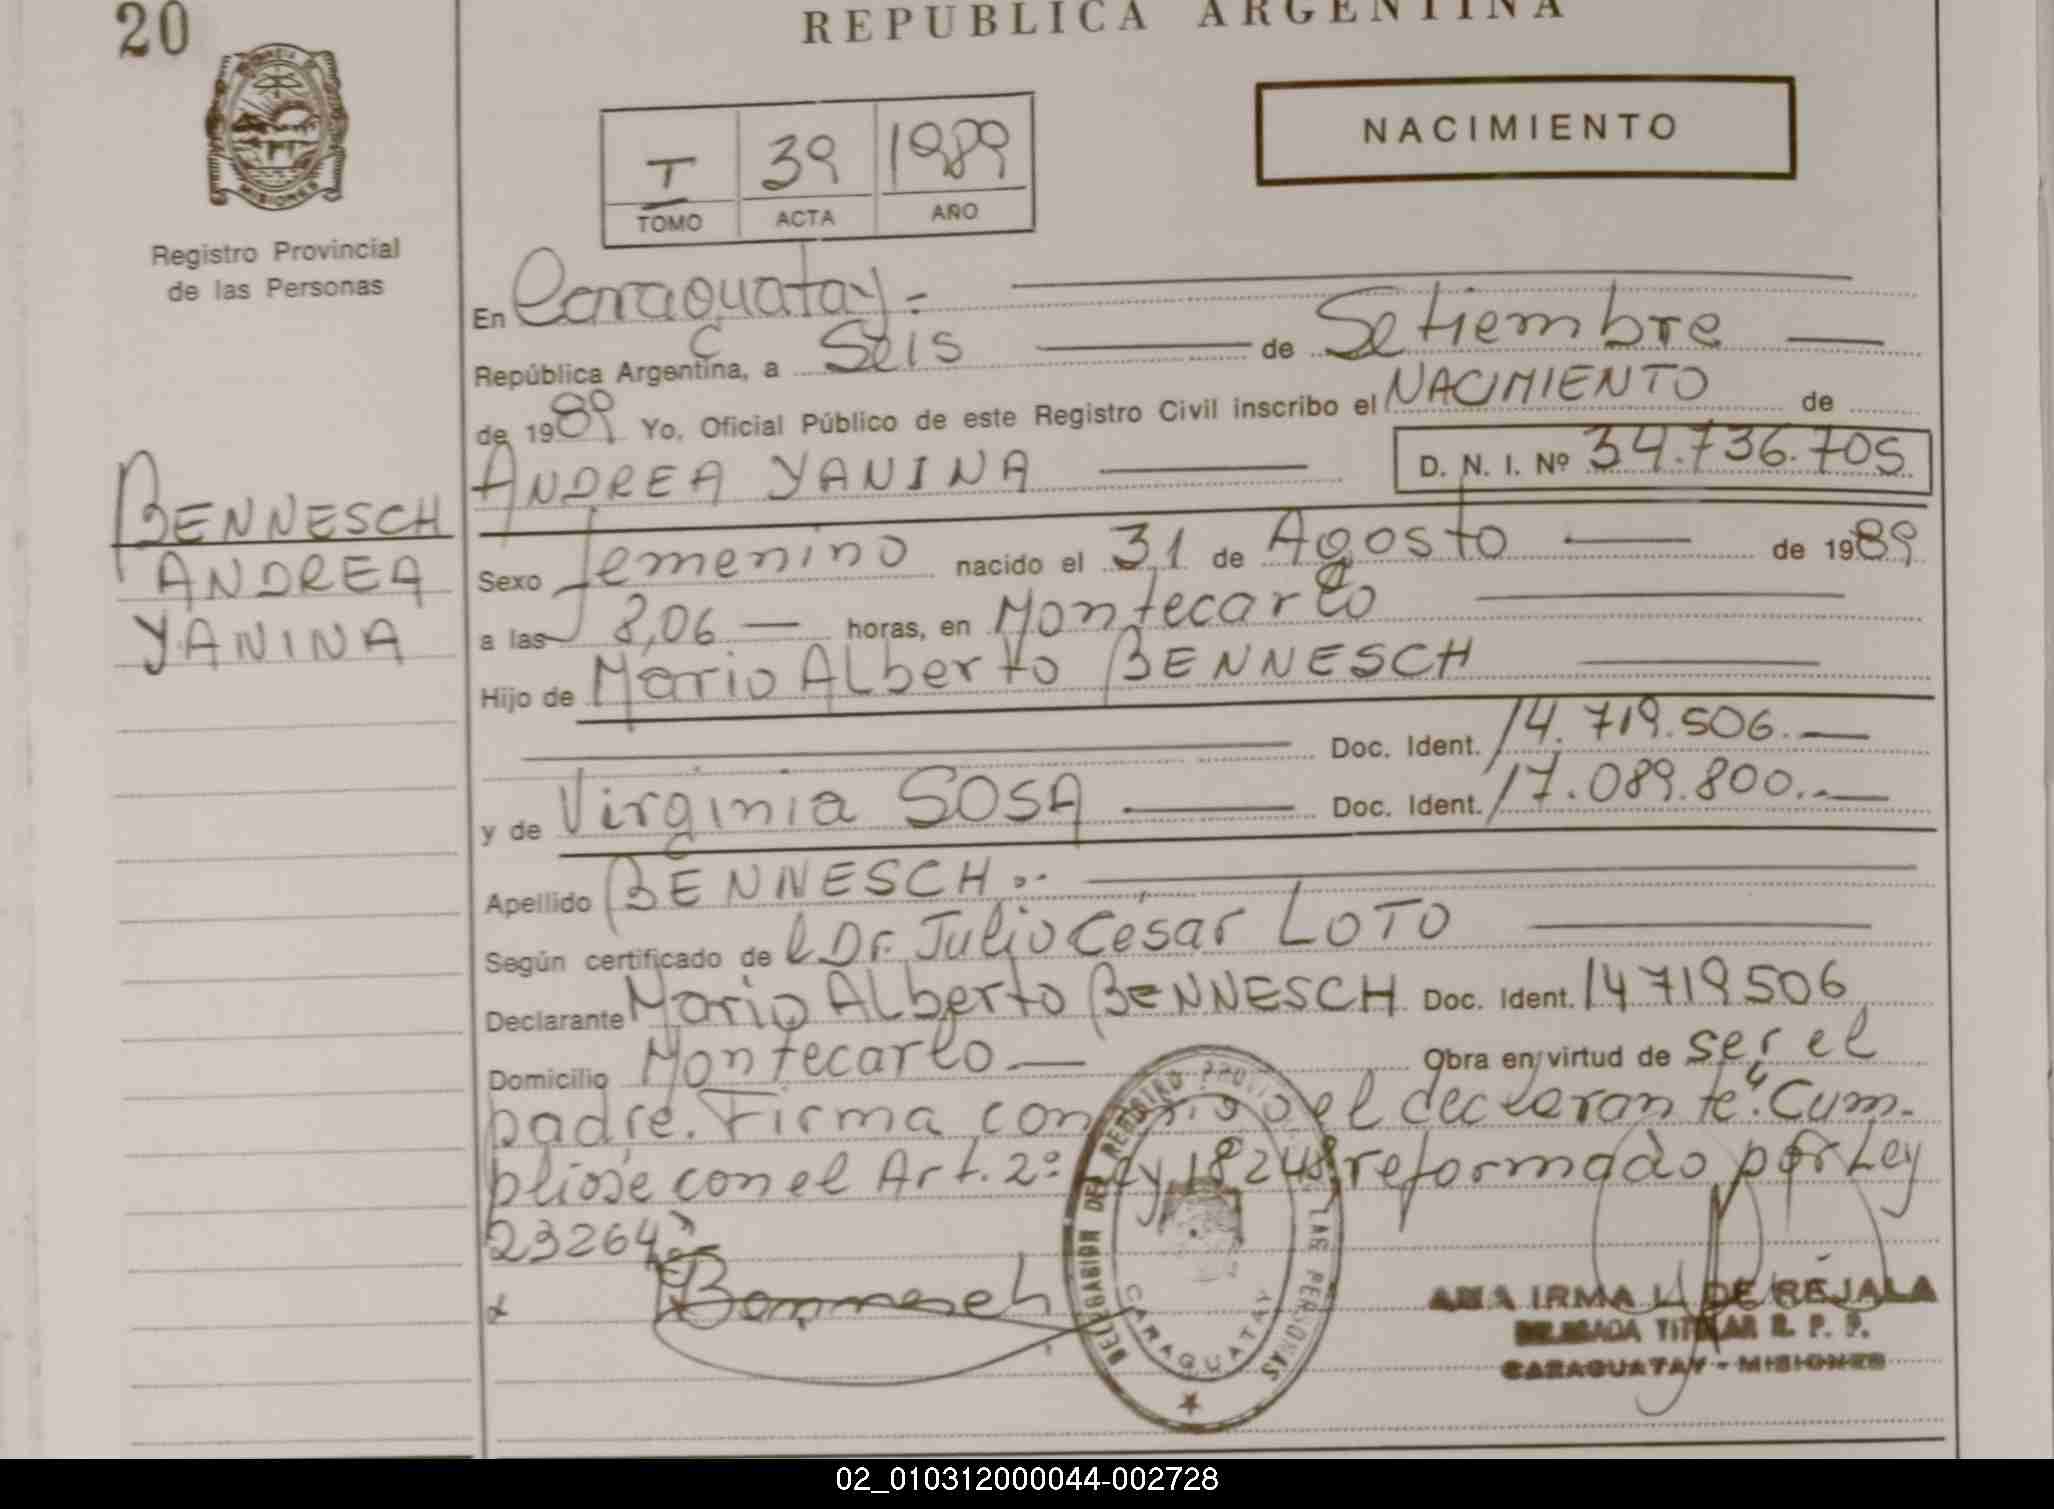 20
REPUBLICA ARGENTINA
MISIONES
Registro Provincial
de las Personas
BENNESCH
ANDREA
YANINA
I 39 1989
TOMO ACTA AÑO
NACIMIENTO
En Caraguatay.-
República Argentina, a Seis de Setiembre
de 1989 Yo, Oficial Público de este Registro Civil inscribo el NACIMIENTO de
ANDREA YANINA D. N. I. Nº 34.736.705
Sexo femenino nacido el 31 de Agosto de 1989
a las 8,06 — horas, en Montecarlo
Hijo de Mario Alberto BENNESCH
Doc. Ident. 14.719.506.—
y de Virginia SOSA Doc. Ident. 17.089.800.—
Apellido BENNESCH..
Según certificado de l Dr. Julio Cesar LOTO
Declarante Mario Alberto BENNESCH Doc. Ident. 14719506
Domicilio Montecarlo — Obra en virtud de ser el
padre. Firma conmigo el declarante." Cum-
pliose con el Art. 2º Ley 18248 reformado por Ley
23264"
Bennesch
DELEGACION DEL REGISTRO PROVINCIAL DE LAS PERSONAS
CARAGUATAY
ANA IRMA L. DE REJALA
DELEGADA TITULAR R. P. P.
CARAGUATAY - MISIONES
02_010312000044-002728